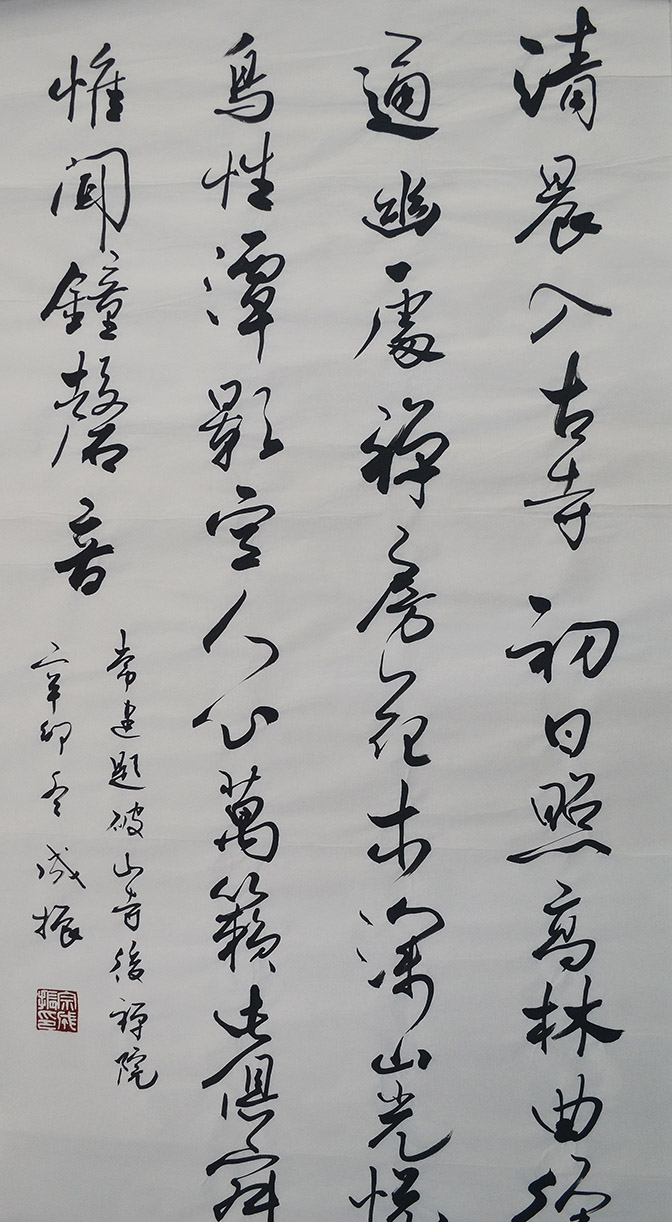 清晨入古寺初日照高林曲徑
通幽處禪房花木深山光悅
鳥性潭影空人心萬籟此俱寂
惟聞鐘磬音
常建題破山寺後禪院
辛卯冬成振
宗成振印